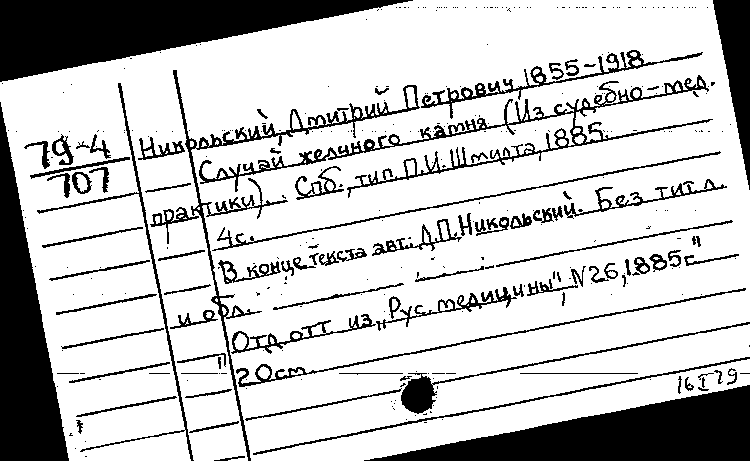 79-4
707
Никольский, Дмитрий Петрович, 1855-1918
Случай желчного камня (Из судебно-мед.
практики). Спб., тип. П.И. Шмидта, 1885.
4с.
В конце текста авт.: Д.П. Никольский. Без тит. л.
и обл.
Отд. отт. из „Рус. медицины", N26, 1885г."
20см.
16 I 79